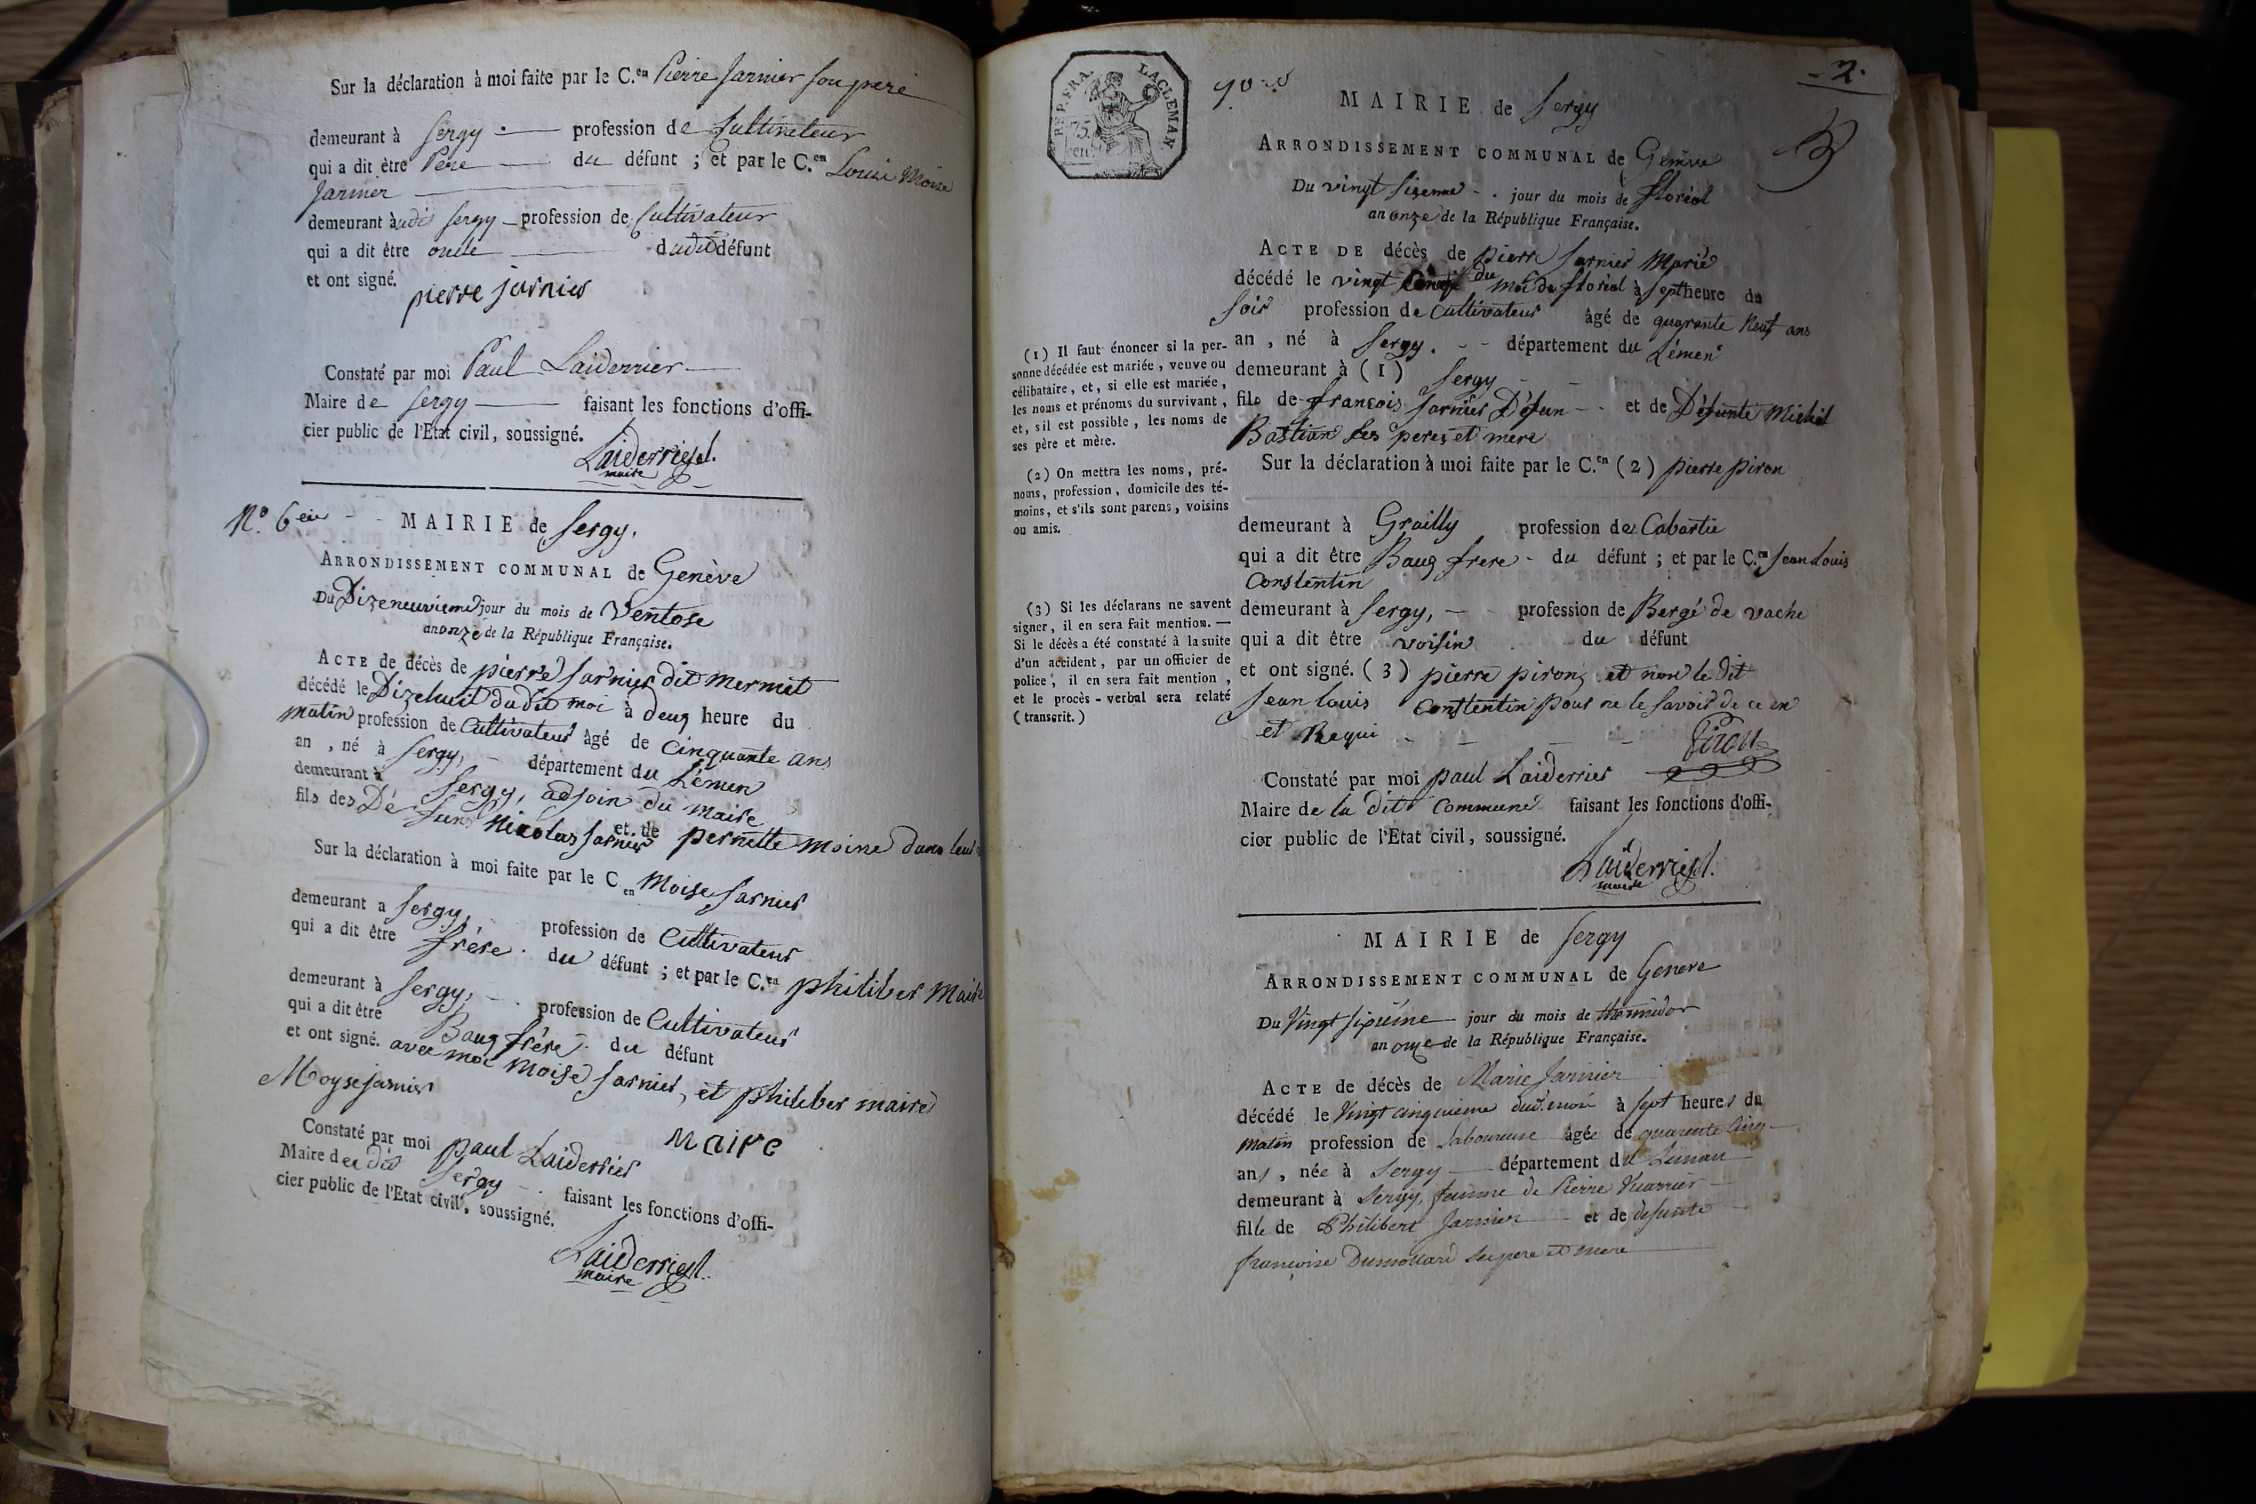 Sur la déclaration à moi faite par le C.en Pierre Jarnier son pere
demeurant à Sergy profession de Cultivateur
qui a dit être Pere du défunt ; et par le C.en Louis Moise
Jarnier
demeurant à udit Sergy profession de Cultivateur
qui a dit être oncle dudit défunt
et ont signé.
pierre jarnier
Constaté par moi Paul Laiderrier
Maire de Sergy faisant les fonctions d'offi-
cier public de l'Etat civil, soussigné.
Laiderrier
maire
N.o 6 MAIRIE de Sergy.
ARRONDISSEMENT COMMUNAL de Genève
Du Dizeneuvieme jour du mois de Ventose
an onze de la République Française.
ACTE de décès de pierre Jarnier dit mermet
décédé le Dizehuit dudit moi à Deux heure du
matin profession de Cultivateur âgé de Cinquante ans
an , né à Sergy, département du Lémen
demeurant à Sergy, adjoin du maire
fils des Défun Nicolas Jarnier et de pernette moine
Sur la déclaration à moi faite par le C en Moise Jarnier
demeurant a Sergy, profession de Cultivateur
qui a dit être frére du défunt ; et par le C.en philiber Maire
demeurant à Sergy, profession de Cultivateur
qui a dit être Baux frére du défunt
et ont signé. avec moi Moise Jarnier, et philiber maire
Moyse jarnier
Maire
Constaté par moi paul Laiderrier
Maire de dit Sergy faisant les fonctions d'offi-
cier public de l'Etat civil, soussigné.
Laiderrier
maire
- 2.
REP. FRA. LAC LEMAN
75. cen.
MAIRIE de Sergy
ARRONDISSEMENT COMMUNAL de Genéve
Du vingt sizeme jour du mois de floréal
an onze de la République Française.
ACTE DE décès de pierre Jarnier Marié
décédé le vingt du moi de floréal à sept heure du
soir profession de Cultivateur âgé de quarante neuf ans
an , né à Sergy. département du Lémen
demeurant à (1) Sergy
fils de françois Jarnier Défun et de Défunte Michel
Bastian Ses peres et mere
Sur la déclaration à moi faite par le C.en (2) pierre piron
demeurant à Grailly profession de Cabartie
qui a dit être Baux frere du défunt ; et par le C.en Jean Louis
Constentin
demeurant à Sergy, profession de Bergé de vache
qui a dit être voisin du défunt
et ont signé. (3) pierre piron, et non le dit
Jean louis Constentin pour ne le savoir de ce en
et Requi
Piron
Constaté par moi paul Laiderrier
Maire de la dite Commune faisant les fonctions d'offi-
cier public de l'Etat civil, soussigné.
Laiderrier
maire
(1) Il faut énoncer si la per-
sonne décédée est mariée, veuve ou
célibataire, et, si elle est mariée,
les noms et prénoms du survivant,
et, s'il est possible, les noms de
ses père et mère.
(2) On mettra les noms, pré-
noms, profession, domicile des té-
moins, et s'ils sont parens, voisins
ou amis.
(3) Si les déclarans ne savent
signer, il en sera fait mention. —
Si le décès a été constaté à la suite
d'un accident, par un officier de
police, il en sera fait mention,
et le procès-verbal sera relaté
(transcrit.)
MAIRIE de Sergy
ARRONDISSEMENT COMMUNAL de Geneve
Du Vingt sixieme jour du mois de thermidor
an onze de la République Française.
ACTE de décès de Marie Jarnier
décédé le Vingt cinquieme dud. mois à sept heures du
matin profession de Laboureuse âgée de quarente cinq
ans , née à Sergy département du Leman
demeurant à Sergy, femme de Pierre
fille de Philibert Jarnier et de defunte
françoise Dumollard ses pere et mere